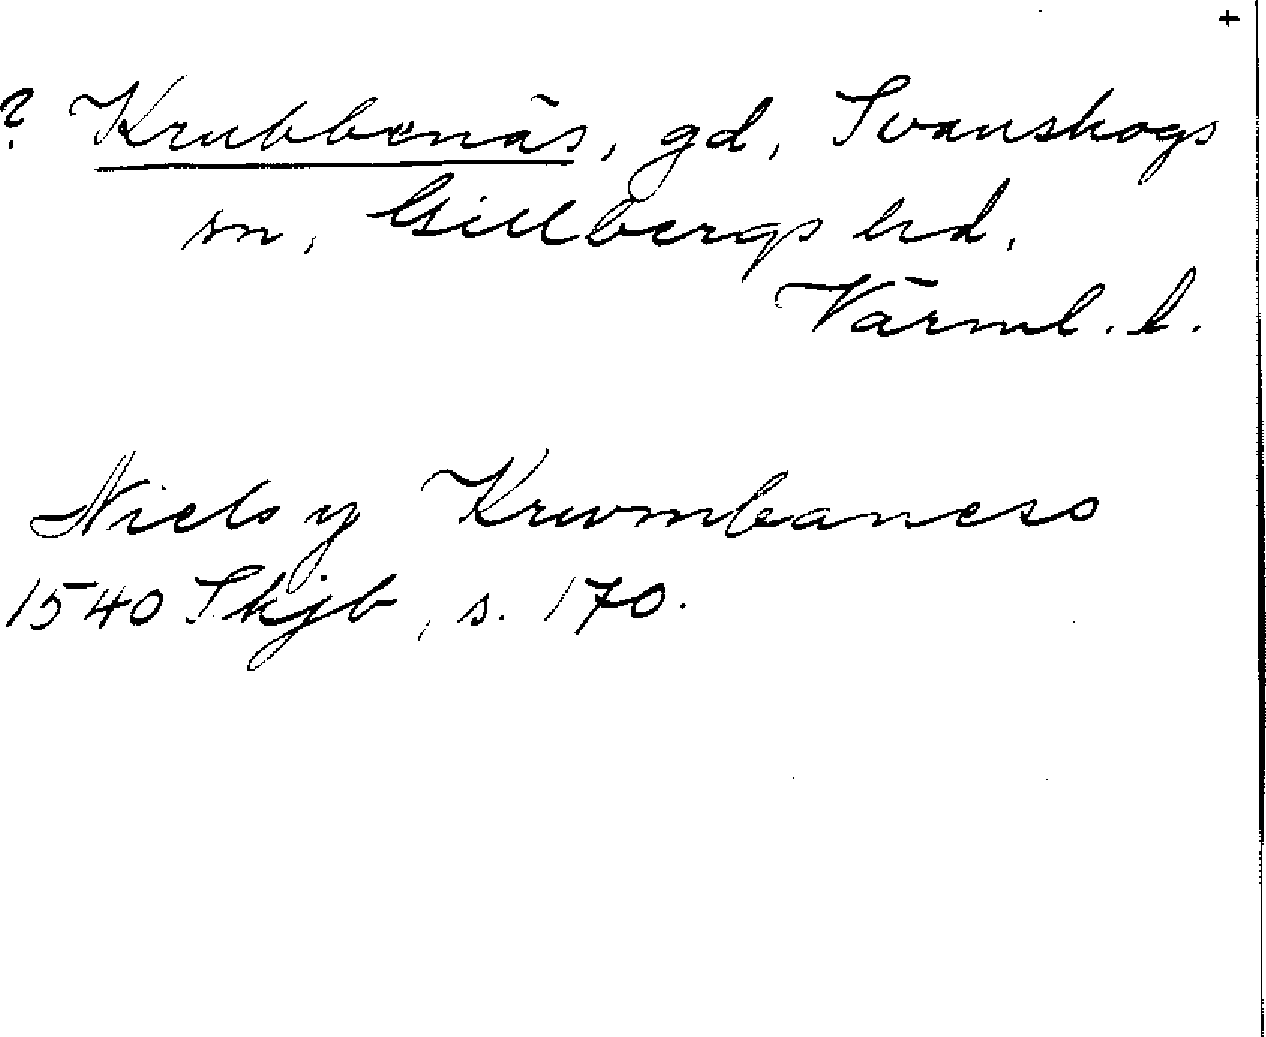 +
? Krubbenäs, gd, Svanskogs
sn, Gillbergs hd,
Värml. l.
Niels y Krwmbaness
1540 Skjb, s. 170.